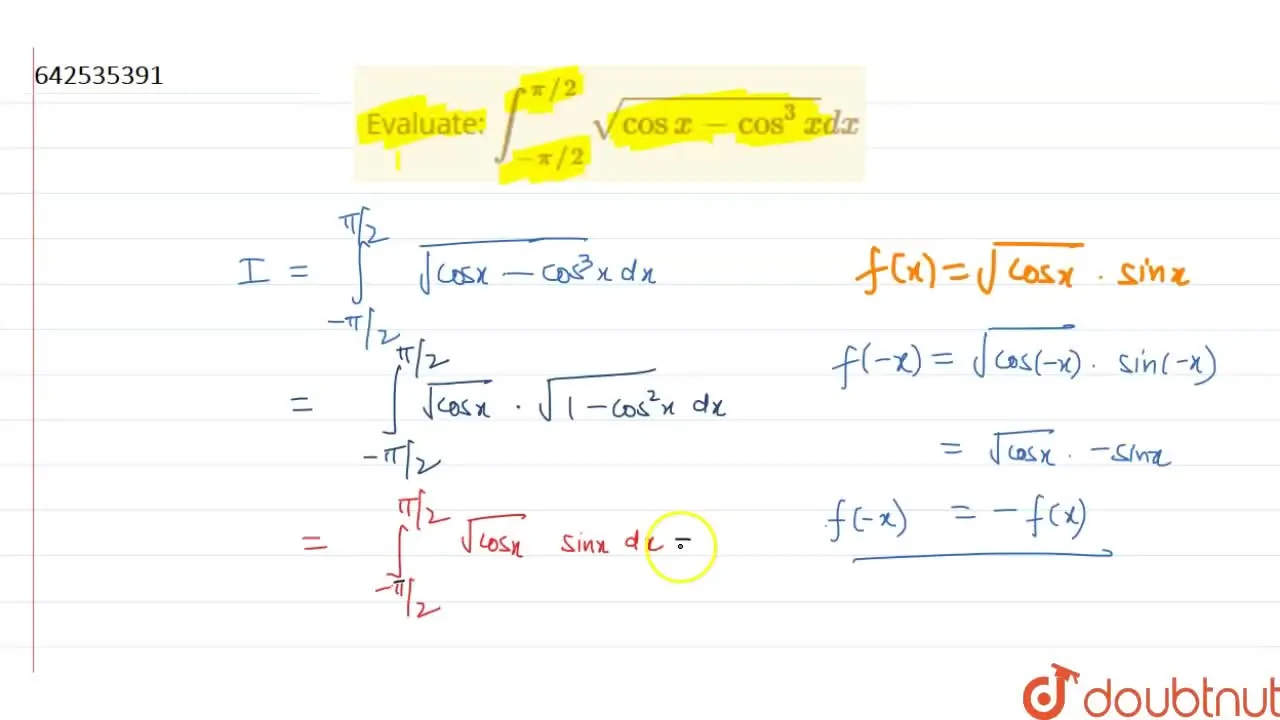 642535391
Evaluate: ∫_{-π/2}^{π/2} √(cos x − cos³ x)dx
I = ∫_{-π/2}^{π/2} √(cosx − cos³x) dx
f(x) = √(cosx) . sinx
= ∫_{-π/2}^{π/2} √(cosx) . √(1 − cos²x) dx
f(−x) = √(cos(−x)) . sin(−x)
= √(cosx) . −sinx
= ∫_{-π/2}^{π/2} √(cosx) sinx dx =
f(−x) = − f(x)
doubtnut